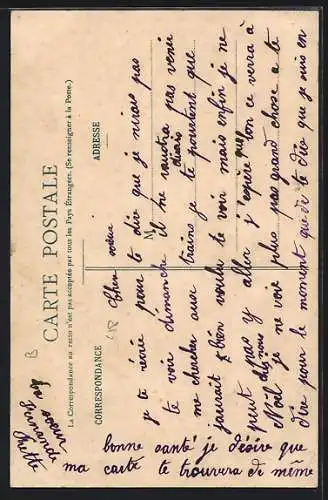 CARTE POSTALE
La Correspondance au recto n'est pas acceptée par tous les Pays Étrangers. (Se renseigner à la Poste.)
CORRESPONDANCE
ADRESSE
B
M
Cher
je te pour te dire que je n'irais pas
te voir dimanche il ne voudra pas venir
me chercher aux trains je te pourtant que
j'aurait bien voulu te voir mais enfin je ne
peut pas y aller j'espère que l'on ce verra à
Noël chez nous je ne voie plus pas grand chose a te
dire pour le moment que de te dire que je suis en
bonne santé je désire que
ma carte te trouvera de même